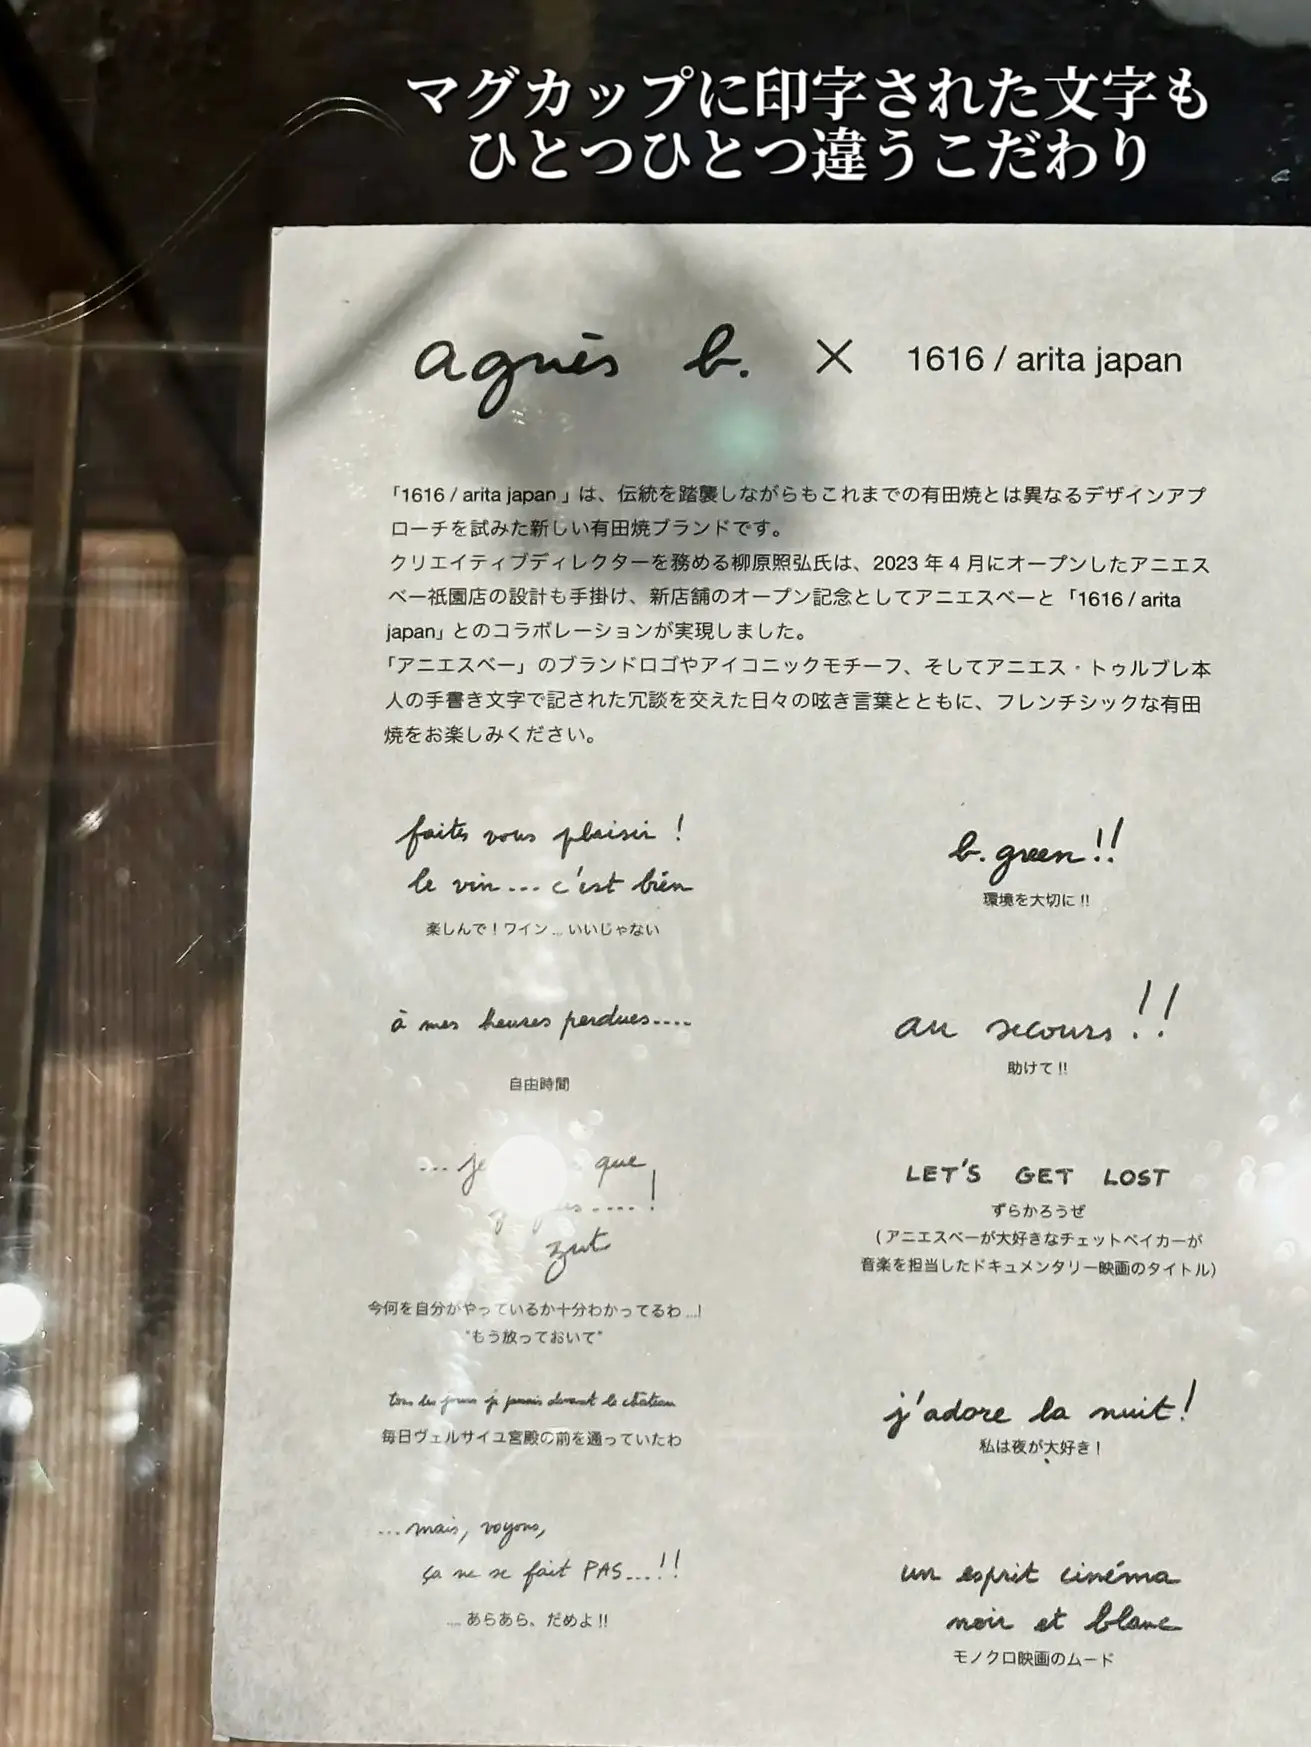 マグカップに印字された文字も
ひとつひとつ違うこだわり
agnès b. × 1616 / arita japan
「1616 / arita japan 」は、伝統を踏襲しながらもこれまでの有田焼とは異なるデザインアプ
ローチを試みた新しい有田焼ブランドです。
クリエイティブディレクターを務める柳原照弘氏は、2023 年 4 月にオープンしたアニエス
ベー祇園店の設計も手掛け、新店舗のオープン記念としてアニエスベーと「1616 / arita
japan」とのコラボレーションが実現しました。
「アニエスベー」のブランドロゴやアイコニックモチーフ、そしてアニエス・トゥルブレ本
人の手書き文字で記された冗談を交えた日々の呟き言葉とともに、フレンチシックな有田
焼をお楽しみください。
faites vous plaisir !
le vin... c'est bien
楽しんで！ワイン... いいじゃない
b. green!!
環境を大切に !!
à mes heures perdues....
自由時間
au secours !!
助けて !!
... je que
.... !
zut
今何を自分がやっているか十分わかってるわ ...!
"もう放っておいて"
LET'S GET LOST
ずらかろうぜ
(アニエスベーが大好きなチェットベイカーが
音楽を担当したドキュメンタリー映画のタイトル)
tous les jours je passais devant le château
毎日ヴェルサイユ宮殿の前を通っていたわ
j'adore la nuit!
私は夜が大好き！
...mais, voyons,
ça ne se fait PAS...!!
.... あらあら、だめよ !!
un esprit cinéma
noir et blanc
モノクロ映画のムード